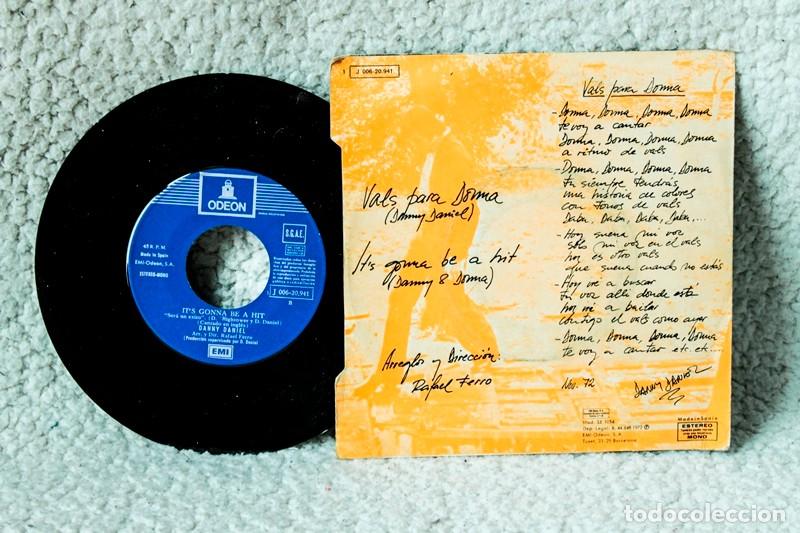 ODEON
45 R. P. M.
Made in Spain
EMI-Odeon, S.A.
ESTEREO-MONO
S.G.A.E.
J 006-20.941
B
IT'S GONNA BE A HIT
"Será un éxito" (D. Hightower y D. Daniel)
(Cantado en inglés)
DANNY DANIEL
Arr. y Dir. Rafael Ferro
(Producción supervisada por D. Daniel)
EMI
1 J 006-20.941
Vals para Donna
(Danny Daniel)
It's gonna be a hit
(Danny & Donna)
Arreglos y Dirección:
Rafael Ferro
Vals para Donna
- Donna, Donna, Donna, Donna
te voy a cantar
Donna, Donna, Donna, Donna
a ritmo de vals
- Donna, Donna, Donna, Donna
tu siempre tendrás
una historia de colores
con tonos de vals
Daba, Daba, Daba, Daba,...
- Hoy suena mi voz
solo mi voz en el vals
hoy es otro vals
que suena cuando no estás
- Hoy voy a buscar
tu voz alli donde esté
hoy voy a bailar
contigo el vals como ayer
- Donna, Donna, Donna, Donna
te voy a cantar etc. etc....
Nov. 72
DANNY DANIEL
Mod. SE 1054
Dep. Legal: B. 44.648-1972 Ⓟ
EMI-Odeon, S. A.
Tuset, 23-25 Barcelona
Made in Spain
ESTEREO
MONO
todocoleccion